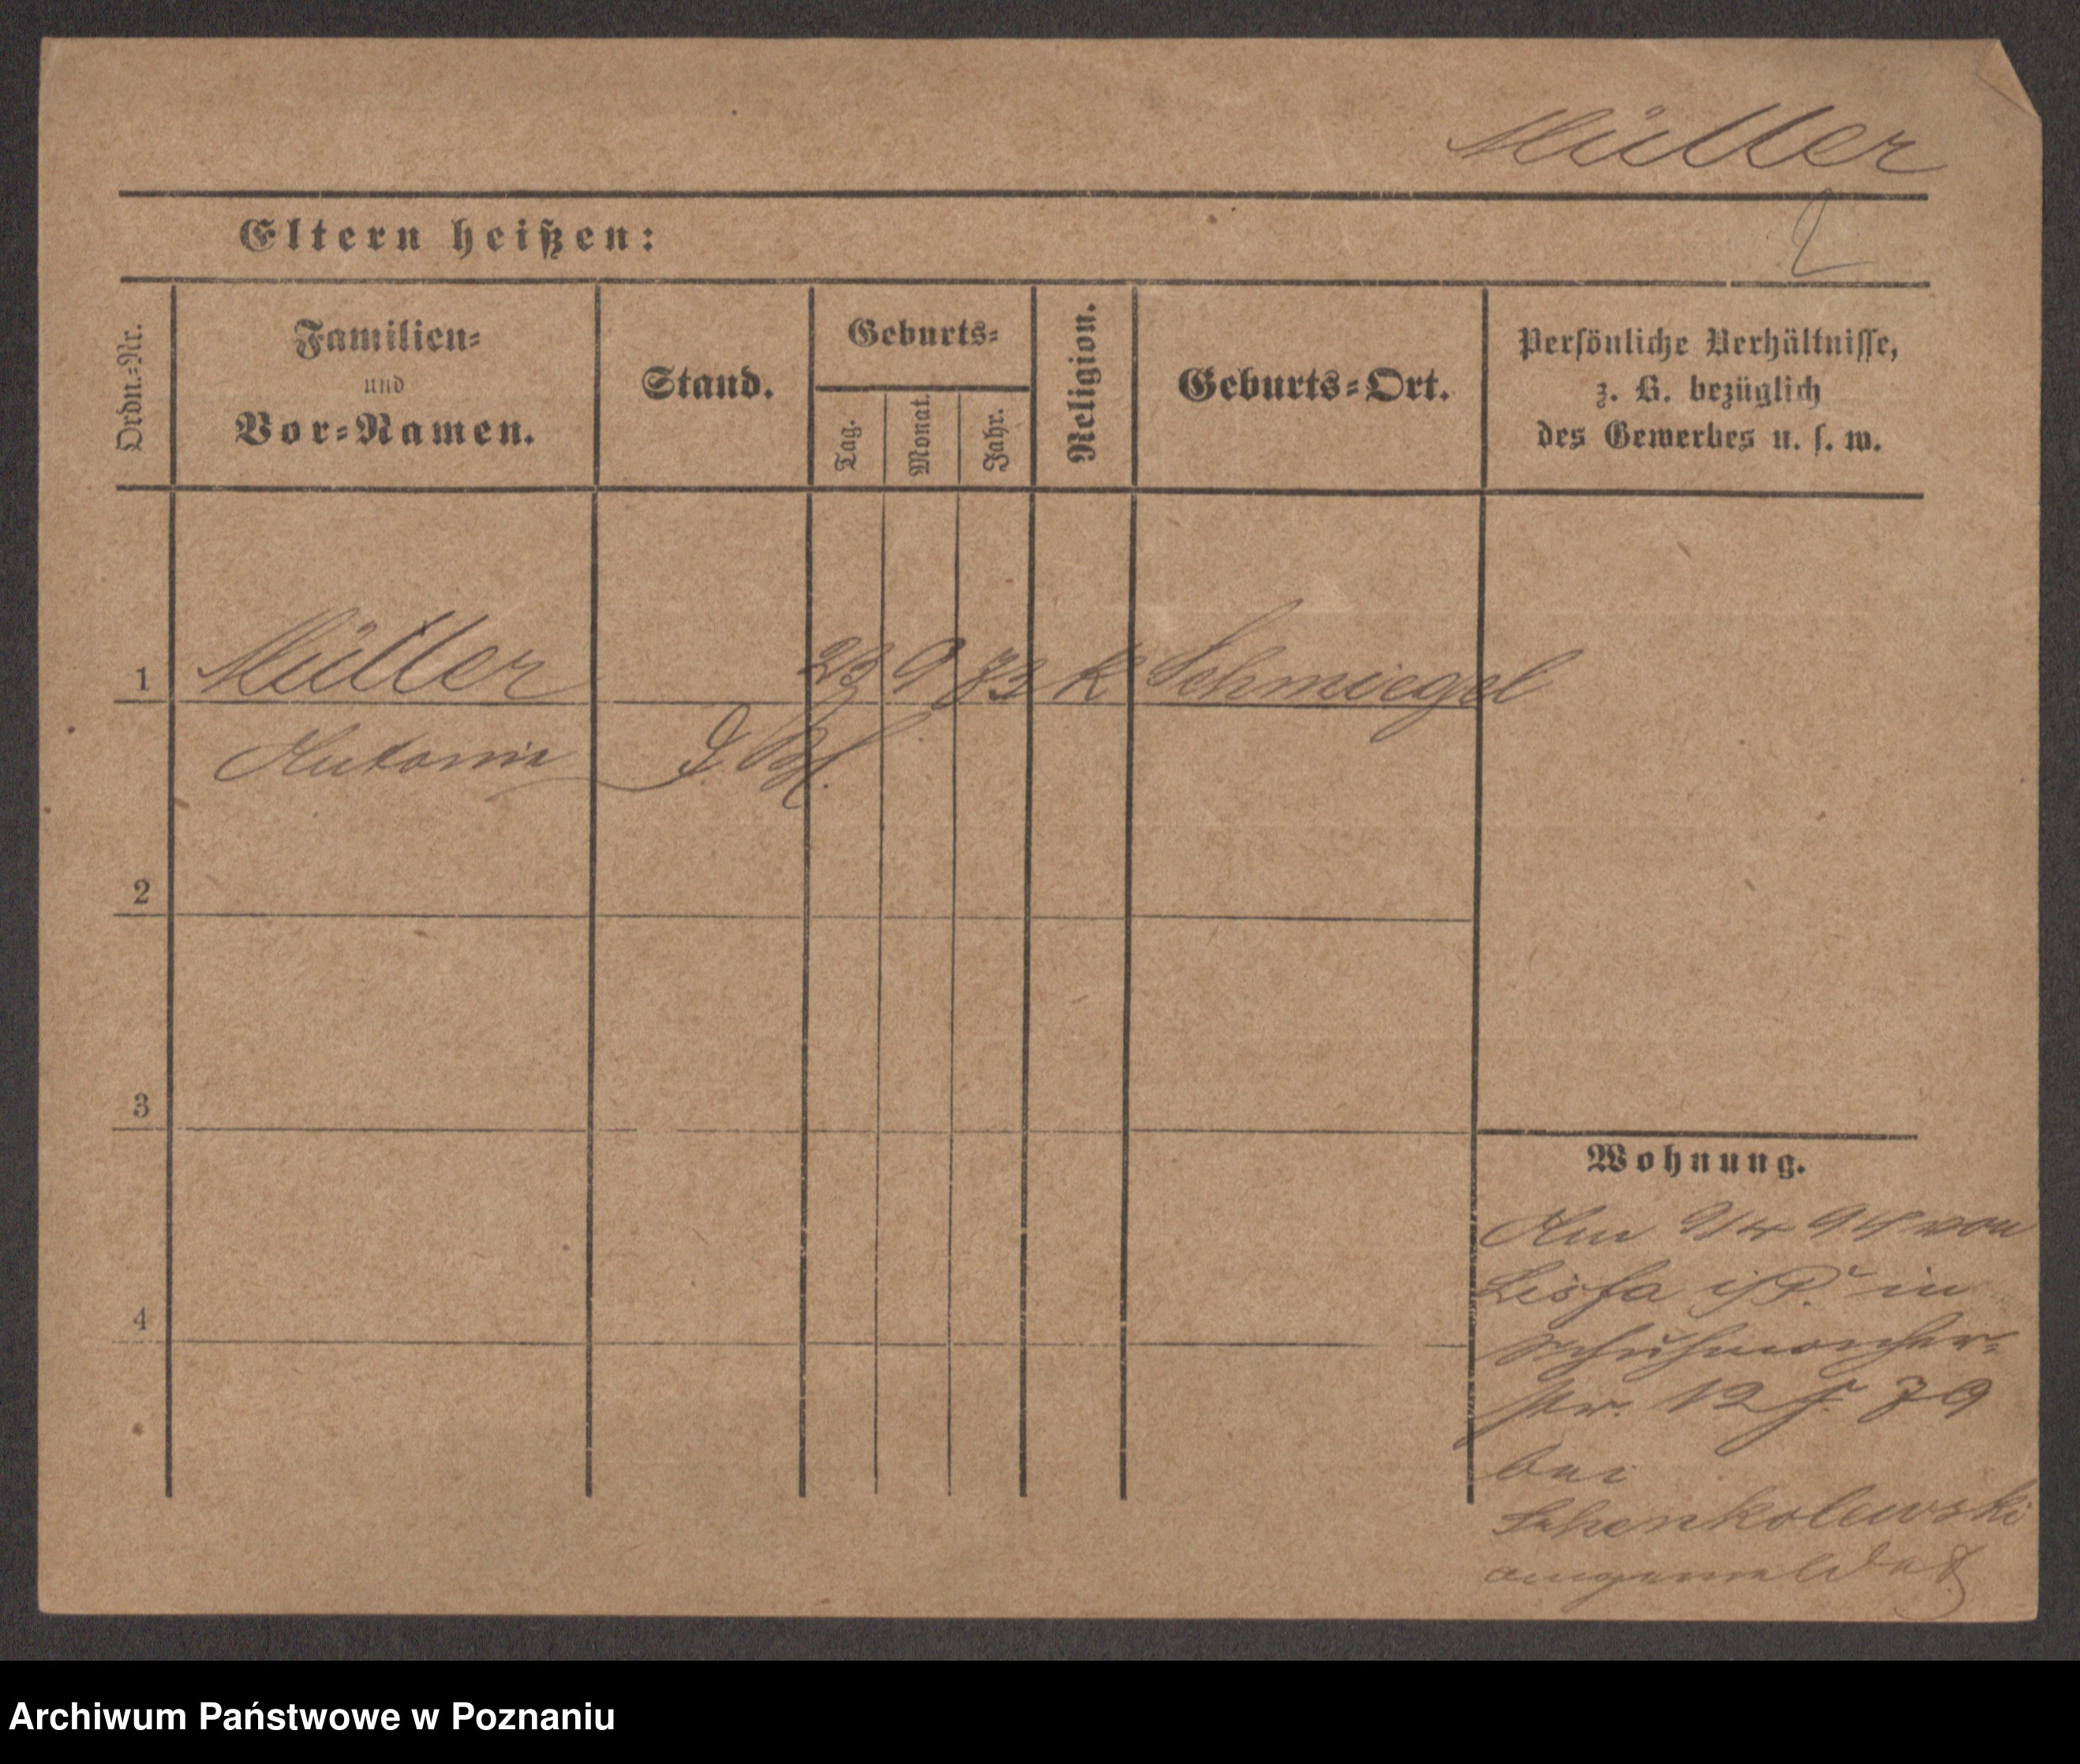 Müller
2
Eltern heißen:
Ordn.-Nr.
Familien-
und
Vor-Namen.
Stand.
Geburts-
Tag.
Monat.
Jahr.
Religion.
Geburts-Ort.
Persönliche Verhältnisse,
z. B. bezüglich
des Gewerbes u. s. w.
1 Müller 23 9 73 k Schmiegel
Antonie
2
3
4
Wohnung.
Am von
Lissa i/P. in
Schuhmacher-
str. 12 f. 79
bei
Schenkolewski
angemeldet
Archiwum Państwowe w Poznaniu